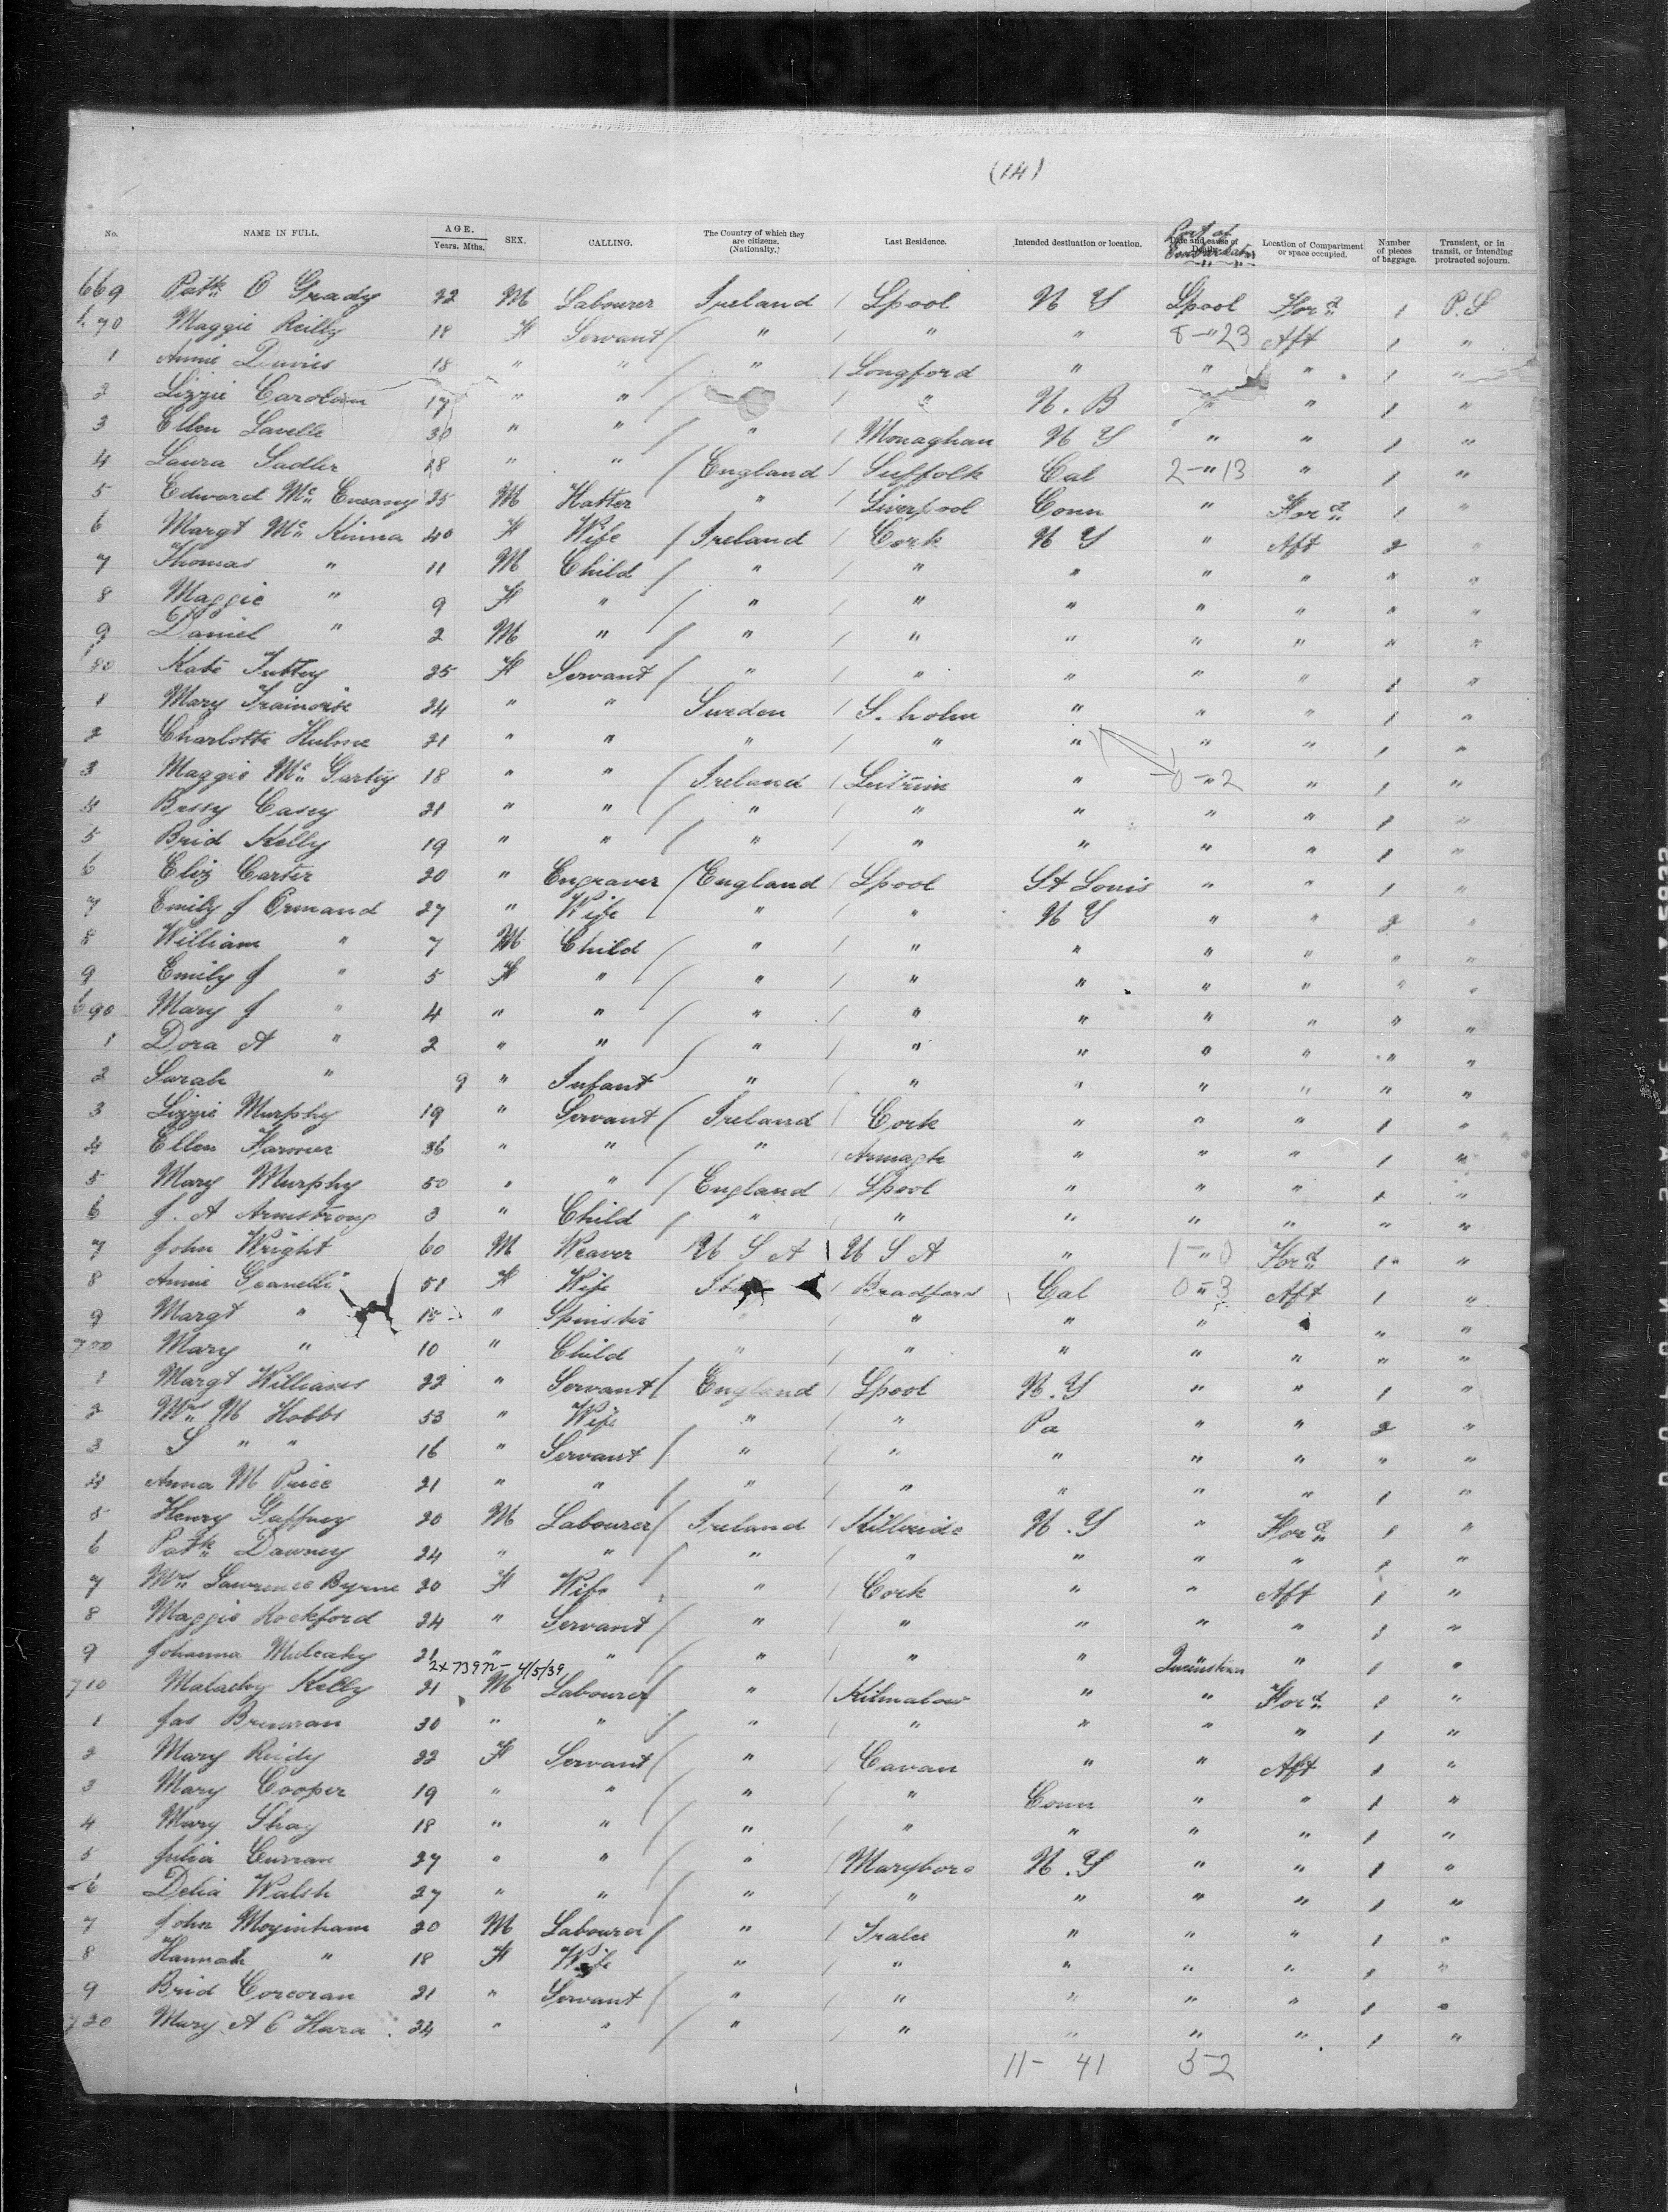 (14)
No. NAME IN FULL. AGE. Years. Mths. SEX. CALLING. The Country of which they are citizens. (Nationality.) Last Residence. Intended destination or location. Port of Embarkation Location of Compartment or space occupied. Number of pieces of baggage. Transient, or in transit, or intending protracted sojourn.
669 Patk O Grady 22 M Labourer Ireland / Lpool N Y Lpool For'd 1 P.S
670 Maggie Reilly 18 F Servant / " / " " 8-"23 Aft 1 "
1 Annie Davis 18 " " / " / Longford " " " 1 "
2 Lizzie Carolan 17 " " / / " N. B " " 1 "
3 Ellen Lavelle 30 " " / " / Monaghan N Y " " 1 "
4 Laura Sadler 18 " " / England / Suffolk Cal 2-"13 " 1 "
5 Edward Mc 25 M Hatter " / Liverpool Conn " For'd 1 "
6 Margt Mc Kinna 40 F Wife / Ireland / Cork N Y " Aft 2 "
7 Thomas " 11 M Child / " / " " " " " "
8 Maggie " 9 F " / " / " " " " " "
9 Daniel " 2 M " / " / " " " " " "
80 Kate 25 F Servant / " / " " " " 1 "
1 Mary 24 " " Sweden / S. holm " " " 1 "
2 Charlotte Hulme 21 " " " / " " " " 1 "
3 Maggie Mc Garty 18 " " / Ireland / Leitrim " 0-"2 " 1 "
4 Bessy Casey 21 " " / " / " " " " 1 "
5 Brid Kelly 19 " " / " / " " " " 1 "
6 Eliz Carter 20 " Engraver / England / Lpool St Louis " " 1 "
7 Emily J Ormand 27 " Wife / " / " N Y " " 2 "
8 William " 7 M Child / " / " " " " " "
9 Emily J " 5 F " / " / " " " " " "
690 Mary J " 4 " " / " / " " " " " "
1 Dora A " 2 " " / " / " " " " " "
2 Sarah " 9 " Infant " / " " " " " "
3 Lizzie Murphy 19 " Servant / Ireland / Cork " " " 1 "
4 Ellen 36 " " / " / Armagh " " " 1 "
5 Mary Murphy 50 " " / England / Lpool " " " 1 "
6 J. A Armstrong 3 " Child / " / " " " " " "
7 John Wright 60 M Weaver U S A \ U S A " 1-"0 For'd 1 "
8 Annie 51 F Wife / Bradford Cal 0"3 Aft 1 "
9 Margt " 15 " Spinster " / " " " " "
700 Mary " 10 " Child " / " " " " " "
1 Margt Williams 22 " Servant / England / Lpool N. Y " " 1 "
2 Mrs M Hobbs 53 " Wife " / " Pa " " 2 "
3 S " " 16 " Servant / " / " " " " " "
4 Anna M Price 21 " " / " / " " " " 1 "
5 Henry Gaffney 20 M Labourer / Ireland / N. Y " For'd 1 "
6 Patk Dawney 24 " " / " / " " " " 1 "
7 Mrs Lawrence Byrne 20 F Wife " / Cork " " Aft 1 "
8 Maggie Rockford 24 " Servant / " / " " " " 1 "
9 Johanna Mulcahy 21 " " / " / " " Queenstown " 1 "
2x7397 - 4/5/39
710 Malachy Kelly 21 M Labourer / " / " " For'd 1 "
1 Jas Brennan 30 " " / " / " " " " 1 "
2 Mary Reidy 22 F Servant / " / Cavan " " Aft 1 "
3 Mary Cooper 19 " " / " / " Conn " " 1 "
4 Mary Shay 18 " " / " / " " " " 1 "
5 Julia Curran 27 " " / " / Maryboro N. Y " " 1 "
6 Delia Walsh 27 " " / " / " " " " 1 "
7 John Moyinham 20 M Labourer / " / Tralee " " " 1 "
8 Hannah " 18 F Wife " / " " " " 1 "
9 Brid Corcoran 21 " Servant / " / " " " " 1 "
720 Mary A O Hara 24 " " / " / " " " " 1 "
11- 41 52